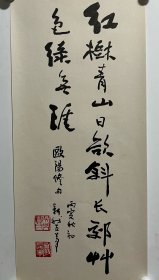 红树青山日欲斜长郊草
色绿无涯
欧阳修句
丙寅秋初